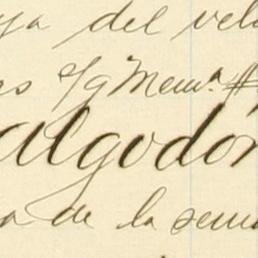 ya del vel
s/g Mem.ª #
algodón
a de la sema